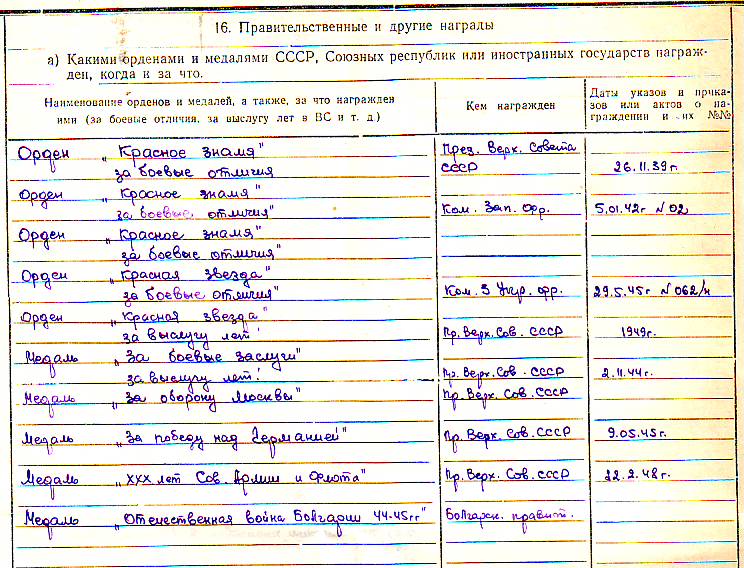 16. Правительственные и другие награды
а) Какими орденами и медалями СССР, Союзных республик или иностранных государств награж-
ден, когда и за что.
Наименование орденов и медалей, а также, за что награжден
ими (за боевые отличия, за выслугу лет в ВС и т. д.)
Кем награжден
Даты указов и прика-
зов или актов о на-
граждении и их №№
Орден „Красное знамя"
за боевые отличия
През. Верх. Совета
СССР
26.11.39г.
Орден „Красное знамя"
за боевые отличия"
Ком. Зап. фр.
5.01.42г N 02
Орден „Красное знамя"
за боевые отличия"
Орден „Красная звезда"
за боевые отличия"
Ком. 3 Укр. фр.
29.5.45г N 062/н
Орден „Красная звезда"
за выслугу лет!
Пр. Верх. Сов. СССР
1949г.
Медаль „За боевые заслуги"
за выслугу лет!
Пр. Верх. Сов. СССР
2.11.44г.
Медаль „За оборону Москвы"
Пр. Верх. Сов. СССР
Медаль „За победу над Германией"
Пр. Верх. Сов. СССР
9.05.45г.
Медаль „XXX лет Сов. Армии и Флота"
Пр. Верх. Сов. СССР
22.2.48г.
Медаль „Отечественная война Болгарии 44-45гг"
Болгарск. правит.